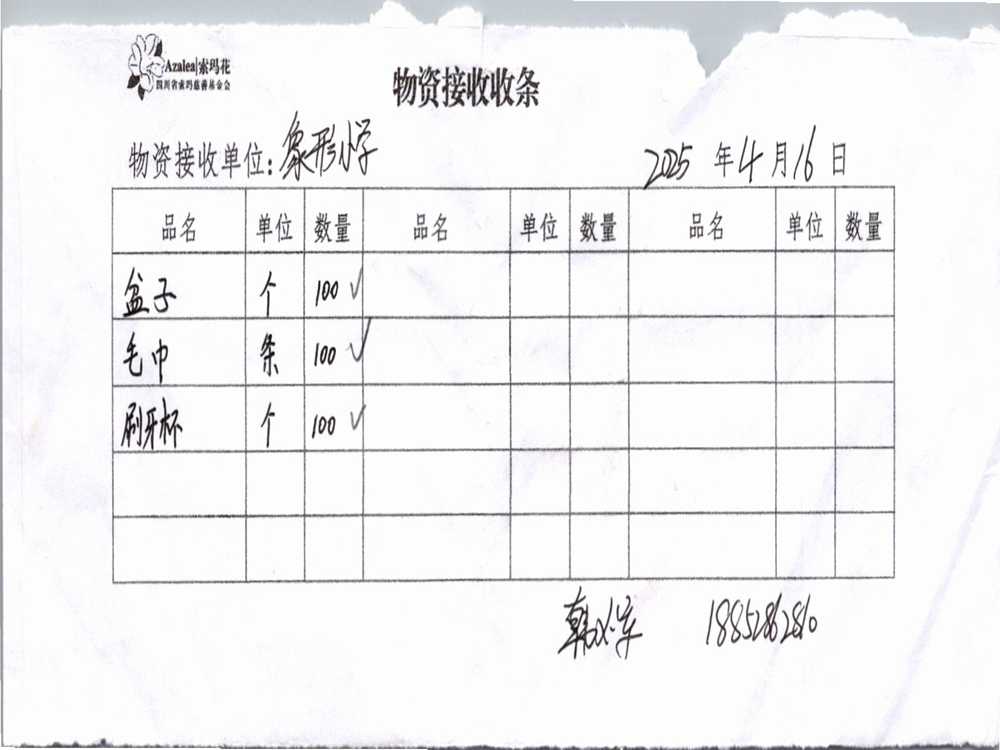 Azalea|索玛花
四川省索玛慈善基金会
物资接收收条
物资接收单位:象形小学 2025年4月16日
品名 单位 数量 品名 单位 数量 品名 单位 数量
盆子 个 100 ✓
毛巾 条 100 ✓
刷牙杯 个 100 ✓
韩 18852862810